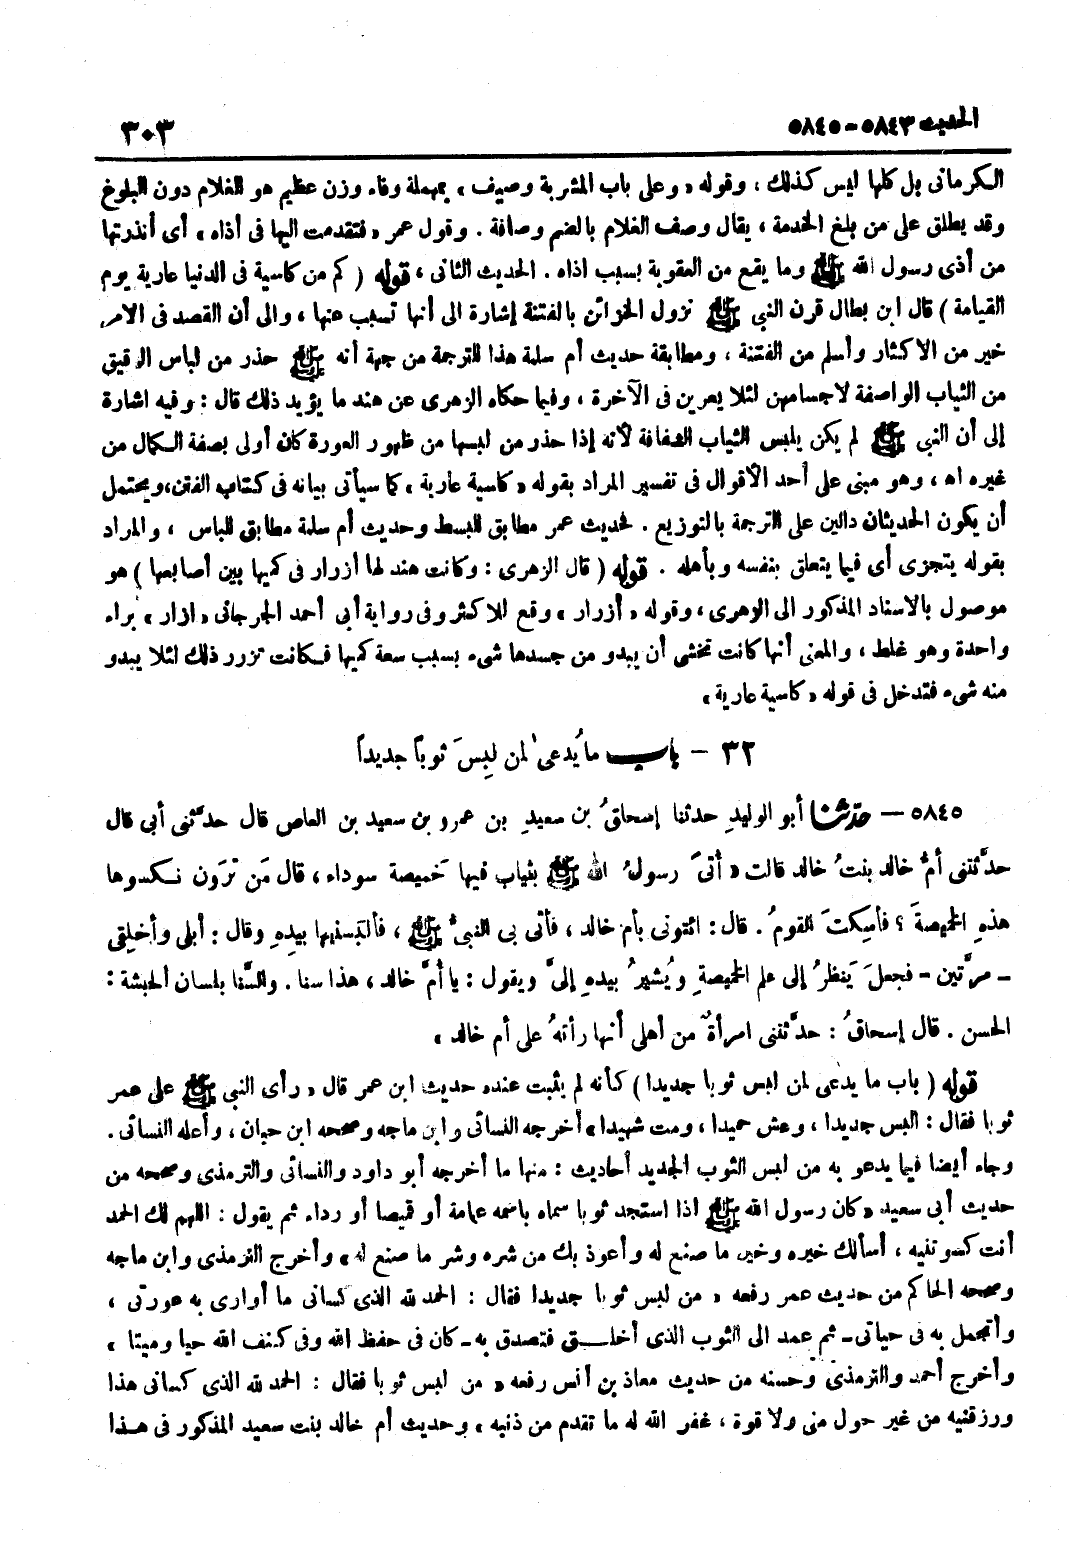 الحديث ٥٨٤٣ - ٥٨٤٥
٣٠٣
الكرمانى بل كلها ليس كذلك ، وقوله « وعلى باب المشربة وصيف » بمهملة وفاء وزن عظيم هو الغلام دون البلوغ
وقد يطلق على من بلغ الخدمة ، يقال وصف الغلام بالضم وصافة . وقول عمر « فتقدمت اليها فى أذاه » أى أنذرتها
من أذى رسول الله ﷺ وما يقع من العقوبة بسبب اذاه . الحديث الثانى ، قوله ( كم من كاسية فى الدنيا عارية يوم
القيامة ) قال ابن بطال قرن النبى ﷺ نزول الخزائن بالفتنة إشارة الى أنها تسبب عنها ، والى أن القصد فى الامر
خير من الاكثار وأسلم من الفتنة ، ومطابقة حديث أم سلمة هذا للترجمة من جهة أنه ﷺ حذر من لباس الرقيق
من الثياب الواصفة لاجسامهن لئلا يعرين فى الآخرة ، وفيما حكاه الزهرى عن هند ما يؤيد ذلك قال : وفيه اشارة
إلى أن النبى ﷺ لم يكن يلبس الثياب الشفافة لأنه إذا حذر من لبسها من ظهور العورة كان أولى بصفة الكمال من
غيره اه ، وهو مبنى على أحد الأقوال فى تفسير المراد بقوله « كاسية عارية » كما سيأتى بيانه فى كتاب الفتن،ويحتمل
أن يكون الحديثان دالين على الترجمة بالتوزيع . لحديث عمر مطابق للبسط وحديث أم سلمة مطابق للباس ، والمراد
بقوله يتجزى أى فيما يتعلق بنفسه وبأهله . قوله ( قال الزهرى : وكانت هند لها أزرار فى كميها بين أصابعها ) هو
موصول بالاسناد المذكور الى الزهرى ، وقوله « أزرار » وقع للاكثر وفى رواية أبى أحمد الجرجانى « ازار » براء
واحدة وهو غلط ، والمعنى أنها كانت تخشى أن يبدو من جسدها شىء بسبب سعة كميها فكانت تزرر ذلك لئلا يبدو
منه شىء فتدخل فى قوله « كاسية عارية »
٣٢ - باب ما يُدعى لمن لبِسَ ثوباً جديداً
٥٨٤٥ - حدثنا أبو الوليدِ حدثنا إسحاقُ بن سعيدِ بن عمرو بن سعيد بن العاص قال حدَّثنى أبى قال
حدَّثتنى أمُّ خالد بنتُ خالد قالت « أُتىَ رسولُ الله ﷺ بثياب فيها خَميصة سوداء ، قال مَن تَرَون نكسوها
هذهِ الخميصةَ ؟ فأسكتَ القومُ . قال : ائتونى بأم خالد ، فأتى بى النبىُّ ﷺ ، فألبَسنيها بيدهِ وقال : أبلى وأخلِقى
- مرَّتين - فجعلَ يَنظرُ إلى علم الخميصةِ ويُشيرُ بيدهِ إلىَّ ويقول : يا أمَّ خالد ، هذا سنا . والسَّنا بلسان الحبشة :
الحسن . قال إسحاقُ : حدَّثتنى امرأةٌ من أهلى أنها رأتهُ على أم خالد »
قوله ( باب ما يدعى لمن لبس ثوبا جديدا ) كأنه لم يثبت عنده حديث ابن عمر قال « رأى النبى ﷺ على عمر
ثوبا فقال : البس جديدا ، وعش حميدا ، ومت شهيدا » أخرجه النسائى وابن ماجه وصححه ابن حبان ، وأعله النسائى .
وجاء أيضا فيما يدعو به من لبس الثوب الجديد أحاديث : منها ما أخرجه أبو داود والنسائى والترمذى وصححه من
حديث أبى سعيد « كان رسول الله ﷺ اذا استجد ثوبا سماه باسمه عمامة أو قميصا أو رداء ثم يقول : اللهم لك الحمد
أنت كسوتنيه ، أسألك خيره وخير ما صنع له وأعوذ بك من شره وشر ما صنع له » وأخرج الترمذى وابن ماجه
وصححه الحاكم من حديث عمر رفعه « من لبس ثوبا جديدا فقال : الحمد لله الذى كسانى ما أوارى به عورتى ،
وأتجمل به فى حياتى - ثم عمد الى الثوب الذى أخلق فتصدق به - كان فى حفظ الله وفى كنف الله حيا وميتا »
وأخرج أحمد والترمذى وحسنه من حديث معاذ بن أنس رفعه « من لبس ثوبا فقال : الحمد لله الذى كسانى هذا
ورزقنيه من غير حول منى ولا قوة ، غفر الله له ما تقدم من ذنبه » وحديث أم خالد بنت سعيد المذكور فى هذا